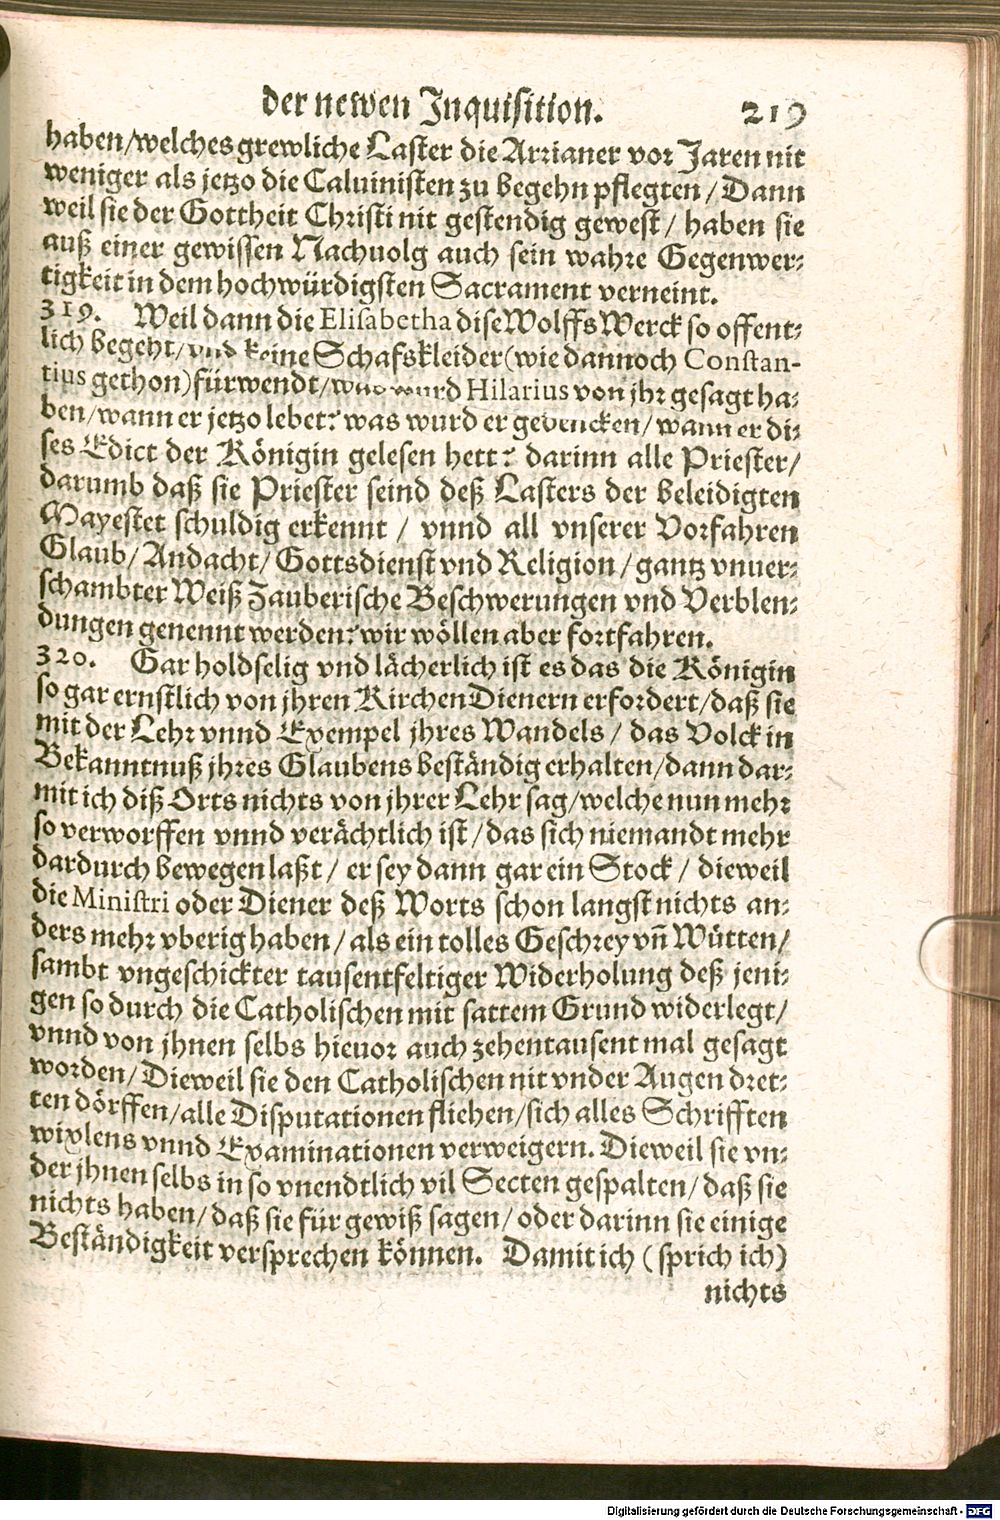 der newen Inquisition. 219
haben/welches grewliche Laster die Arrianer vor Jaren nit
weniger als jetzo die Caluinisten zu begehn pflegten/Dann
weil sie der Gottheit Christi nit gestendig gewest/ haben sie
auß einer gewissen Nachuolg auch sein wahre Gegenwer-
tigkeit in dem hochwürdigsten Sacrament verneint.
319. Weil dann die Elisabetha dise Wolffs Werck so offent-
lich begeht/vnd keine Schafskleider(wie dannoch Constan-
tius gethon)fürwendt/ wurd Hilarius von jhr gesagt ha-
ben/wann er jetzo lebet? was wurd er gedencken/wann er di-
ses Edict der Königin gelesen hett? darinn alle Priester/
darumb daß sie Priester seind deß Lasters der beleidigten
Mayestet schuldig erkennt/ vnnd all vnserer Vorfahren
Glaub/Andacht/Gottsdienst vnd Religion/gantz vnuer-
schambter Weiß Zauberische Beschwerungen vnd Verblen-
dungen genennt werden? wir wöllen aber fortfahren.
320. Gar holdselig vnd lächerlich ist es das die Königin
so gar ernstlich von jhren Kirchen Dienern erfordert/daß sie
mit der Lehr vnnd Exempel jhres Wandels/ das Volck in
Bekanntnuß jhres Glaubens beständig erhalten/dann dar-
mit ich diß Orts nichts von jhrer Lehr sag/welche nun mehr
so verworffen vnnd verächtlich ist/das sich niemandt mehr
dardurch bewegen laßt/ er sey dann gar ein Stock/ dieweil
die Ministri oder Diener deß Worts schon langst nichts an-
ders mehr vberig haben/als ein tolles Geschrey vñ Wütten/
sambt vngeschickter tausentfeltiger Widerholung deß jeni-
gen so durch die Catholischen mit sattem Grund widerlegt/
vnnd von jhnen selbs hieuor auch zehentausent mal gesagt
worden/Dieweil sie den Catholischen nit vnder Augen dret-
ten dörffen/alle Disputationen fliehen/sich alles Schrifften
wixlens vnnd Examinationen verweigern. Dieweil sie vn-
der jhnen selbs in so vnendtlich vil Secten gespalten/daß sie
nichts haben/daß sie für gewiß sagen/oder darinn sie einige
Beständigkeit versprechen können. Damit ich (sprich ich)
nichts
Digitalisierung gefördert durch die Deutsche Forschungsgemeinschaft - DFG